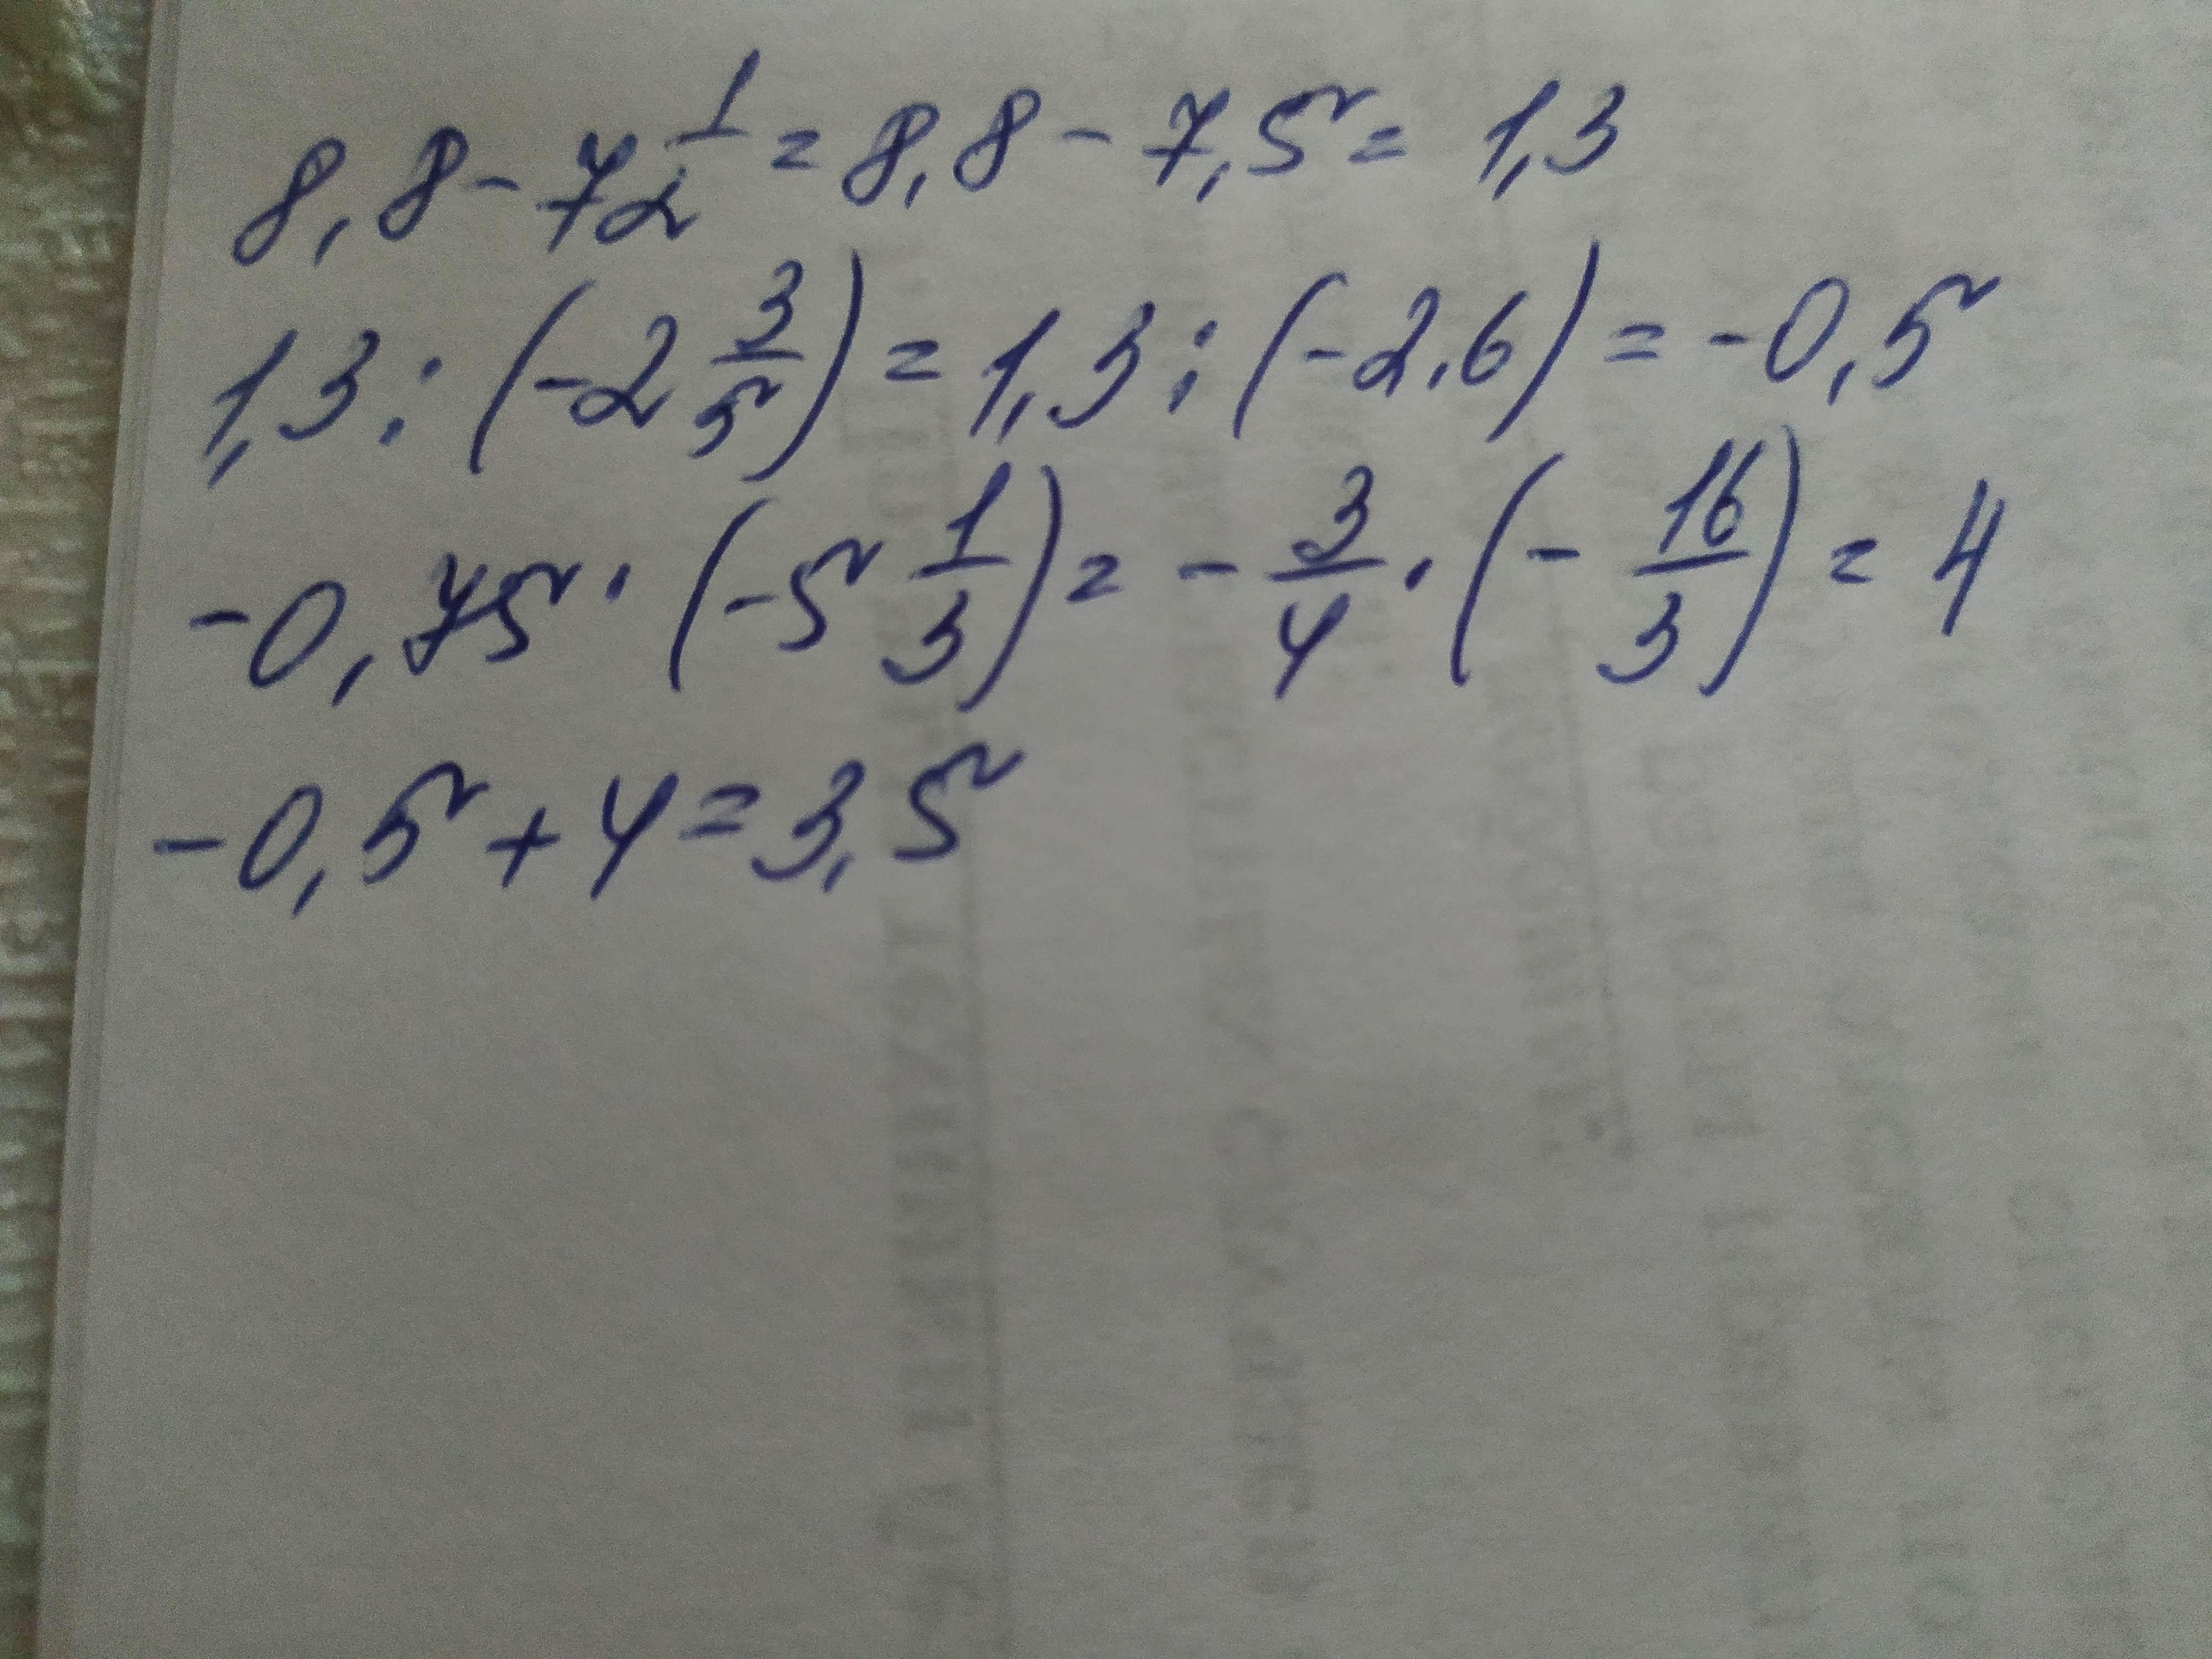 8,8 - 7 1/2 = 8,8 - 7,5 = 1,3
1,3 : (-2 3/5) = 1,3 : (-2,6) = -0,5
-0,75 · (-5 1/3) = - 3/4 · (- 16/3) = 4
-0,5 + 4 = 3,5